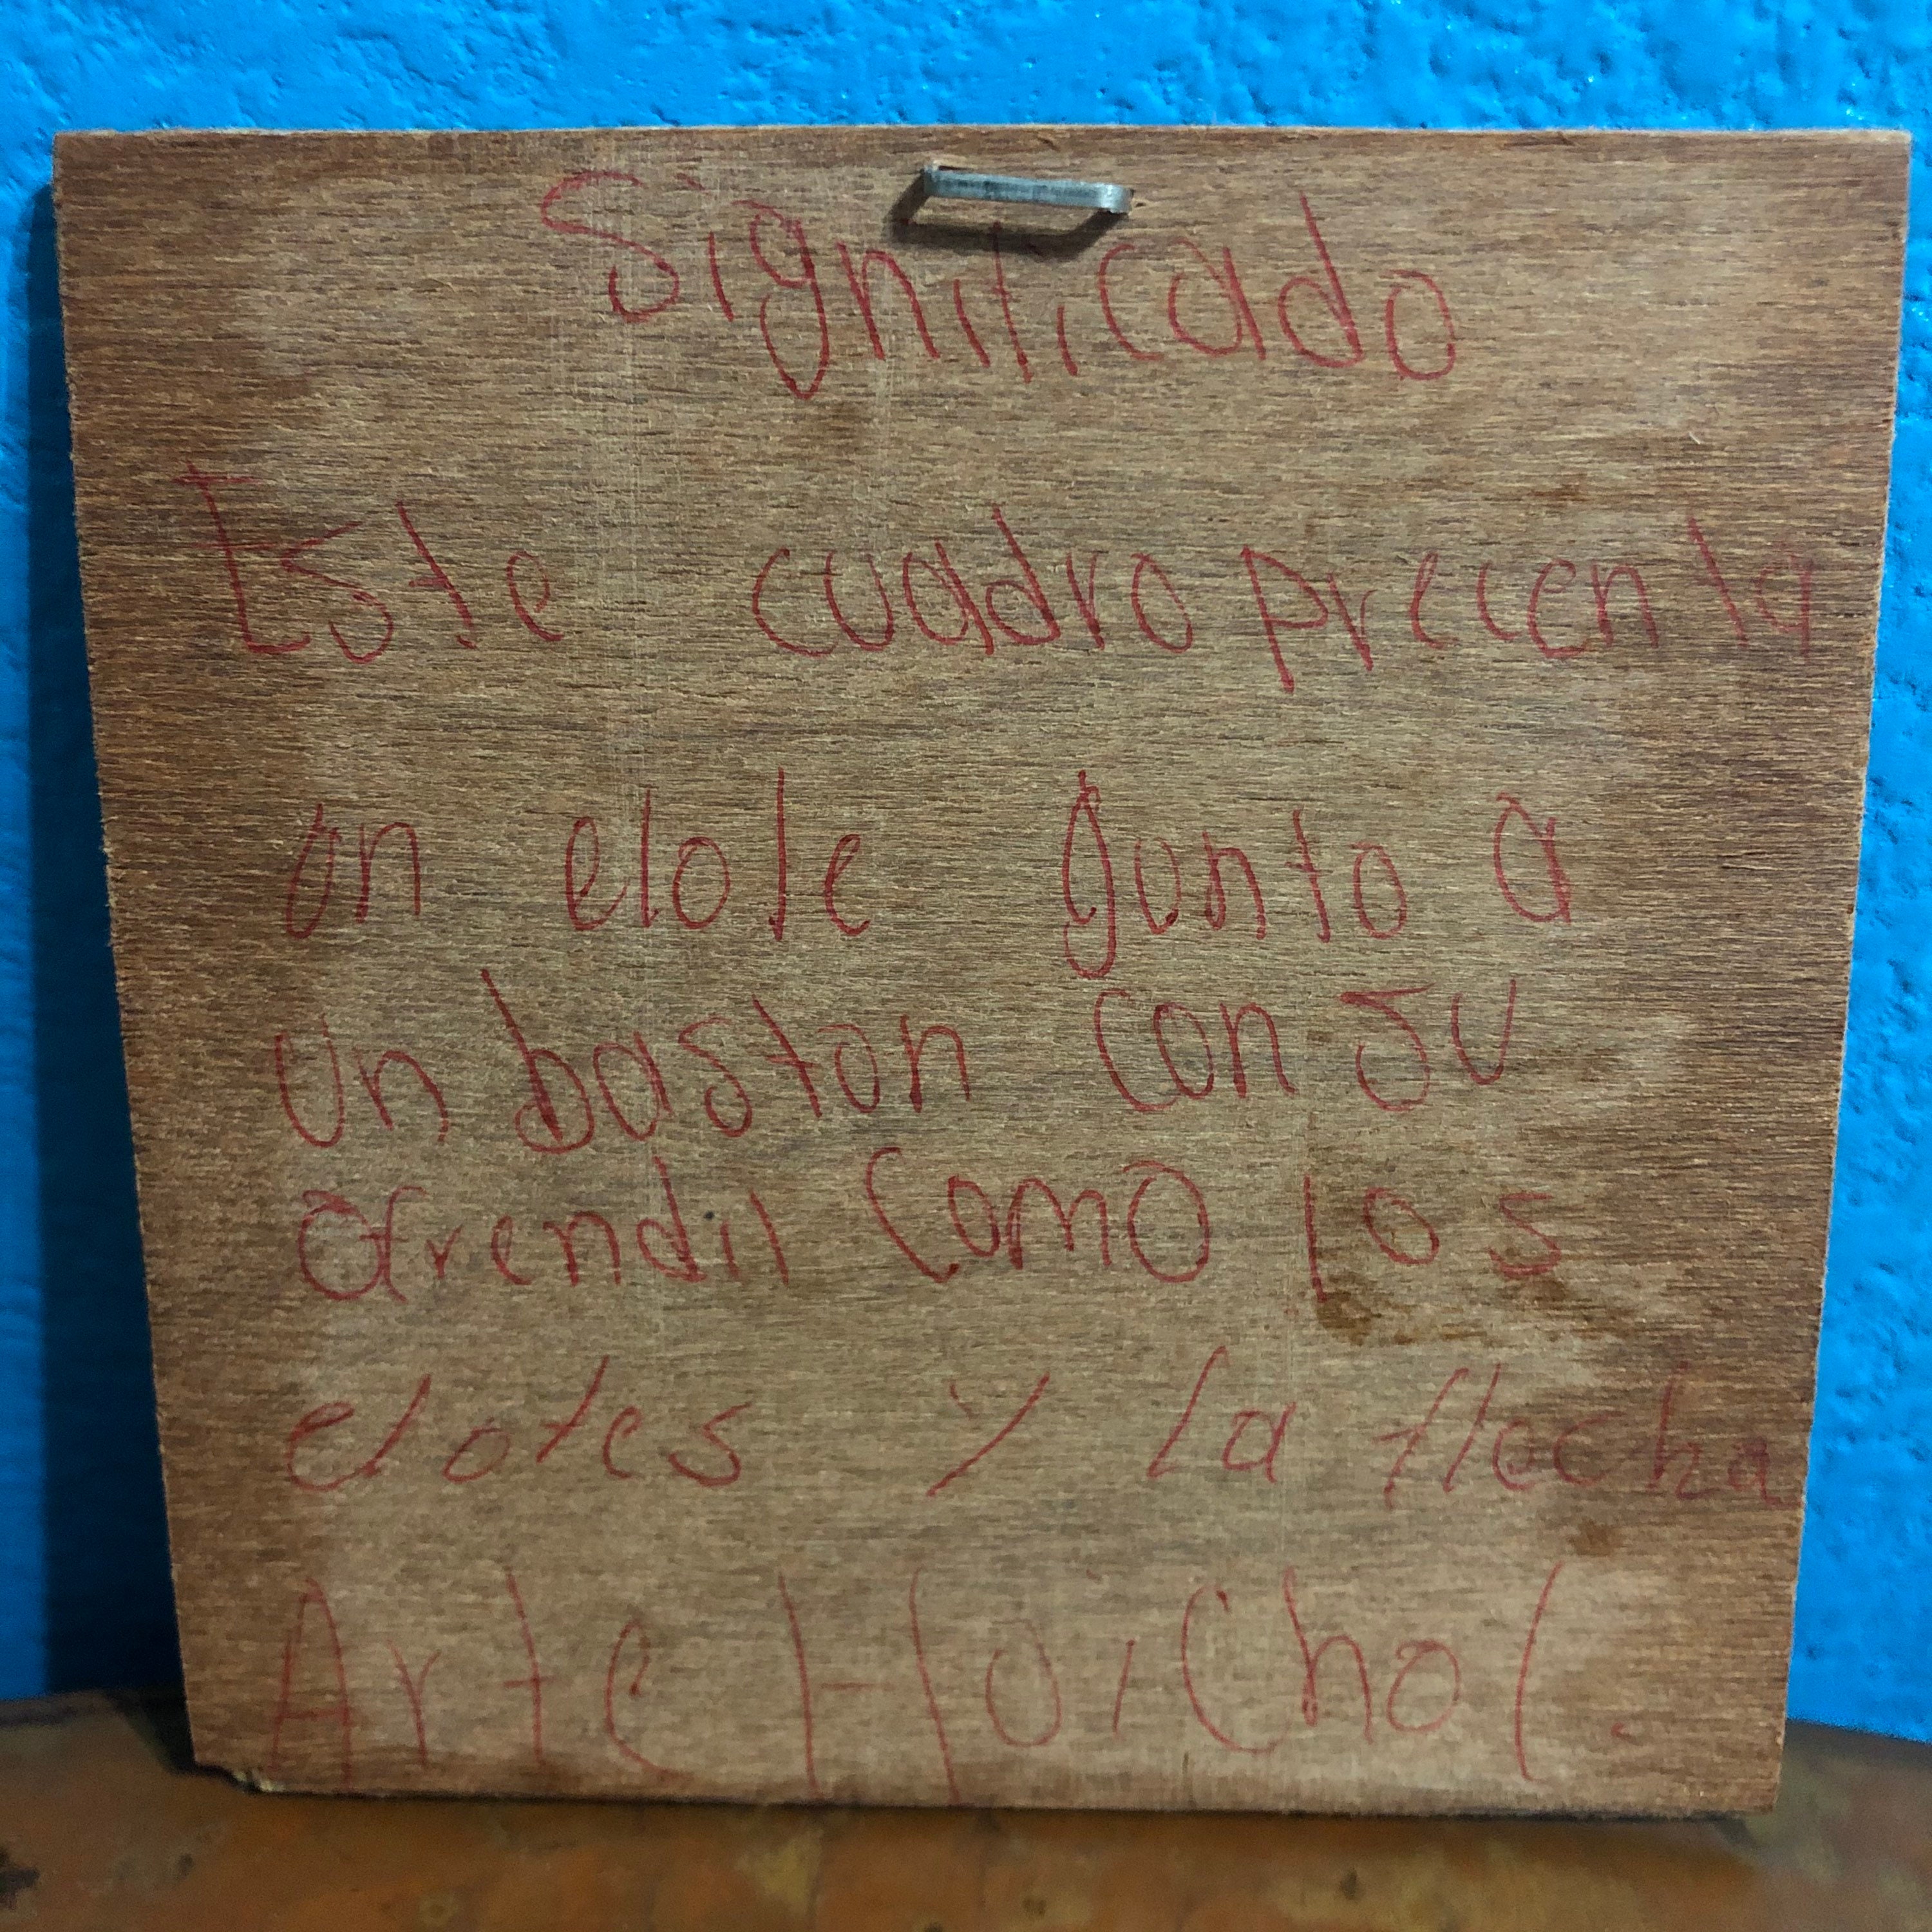 Significado
Este cuadro precenta
un elote gunto a
un baston con su
ofrendii como los
elotes y la flecha
Arte Huichol.